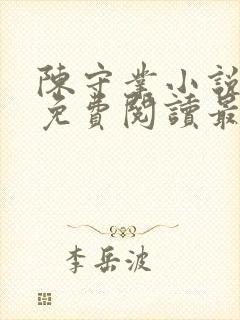 陳守業小說
免費閱讀最
李岳波